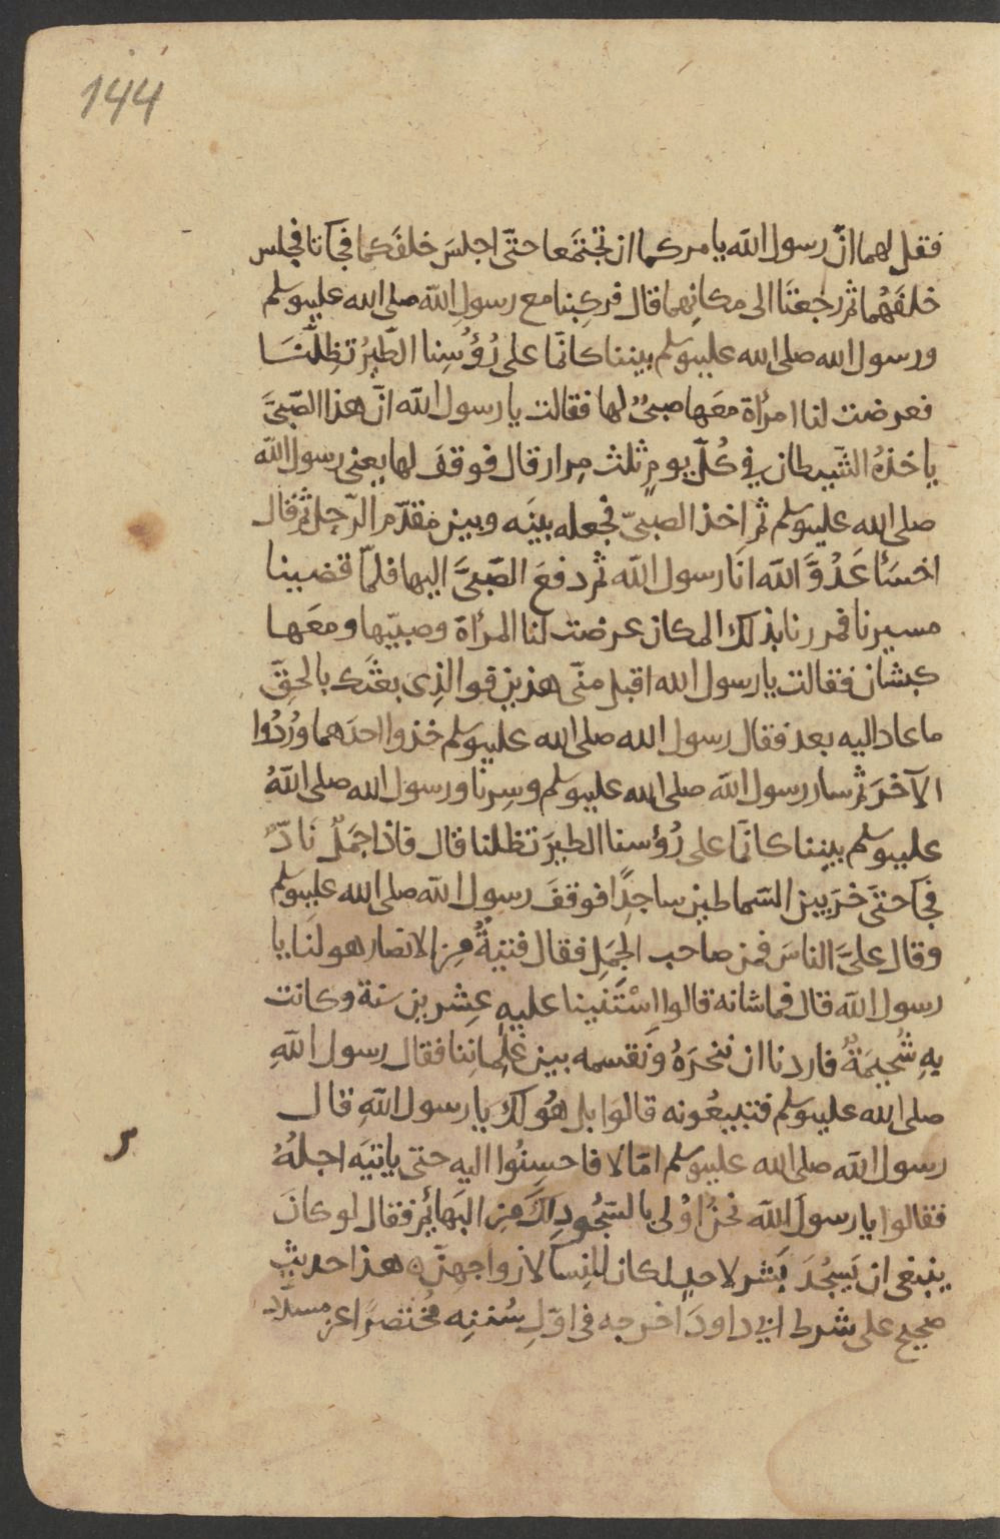 144
فقل لهما انّ رسول الله يامركما ان تجتمعا حتّى اجلسَ خلفَكما فجاتا فجلس
خلفَهُما ثم رجَعتَا الى مكانِهما قال فركِبنا مع رسولِ الله صلى الله عليه وسلم
ورسول الله صلى الله عليه وسلم بيننا كانّما على رُؤُسِنا الطّيرُ تظِلّنا
فعرضت لنا امرأة معَها صبىٌّ لها فقالت يا رسول الله انّ هذا الصّبىَّ
ياخذهُ الشّيطان فى كُلّ يومٍ ثلث مِرار قال فوقفَ لها يعنى رسول الله
صلى الله عليه وسلم ثم اخذ الصبىّ فجعله بينَه وبين مقدّم الرّحل ثم قال
اخسَأ عَدُوَّ الله انَا رسول الله ثم دفعَ الصّبىَّ اليها فلمّا قضينا
مسيرنا فمررنا بذلك المكان عرضت لنا المرأة وصبيّها ومعَها
كبشان فقالت يا رسول الله اقبل منّى هذين فوالذِى بعثك بالحقّ
ما عاد اليه بعد فقال رسول الله صلى الله عليه وسلم خذوا احدَهما ورُدُّوا
الآخرَ ثم سار رسول الله صلى الله عليه وسلم وسِرنا ورسول الله صلى اللهُ
عليه وسلم بيننا كانّما على رُؤسنا الطيرَ تظلنا قال فاذا جمَلٌ نادٌّ
فجا حتىَ خرَ بين السّماطين ساجِدًا فوقفَ رسول الله صلى الله عليه وسلم
وقال علىَّ الناسَ فمن صاحب الجمَلِ فقال فتيةٌ مِن الانصار هو لنَا يا
رسول الله قال فما شانه قالوا اسْتَنَينا عليهِ عِشرين سنة وكانت
بهِ شُحيمَةٌ فاردنا ان ننحرَهُ ونقسمه بين غلمانِنا فقال رسول اللهِ
صلى الله عليه وسلم فتبيعُونه قالوا بل هُو لك يا رسول اللهِ قال
رسول الله صلى الله عليه وسلم امّا لا فاحسِنُوا اليه حتى ياتيَه اجلُهُ
فقالوا يا رسولَ الله نحنُ اوْلى بالسّجُودِ لكَ مِن البَهائم فقال لو كانَ
ينبغى ان يَسجُدَ بَشر لاحدٍ لكان للنِسا لازواجهِنّ هذا حديث
صحيح على شرط ابى داودَ اخرجه فى اوّلِ سُننِه مُختصرًا عن مسدّد